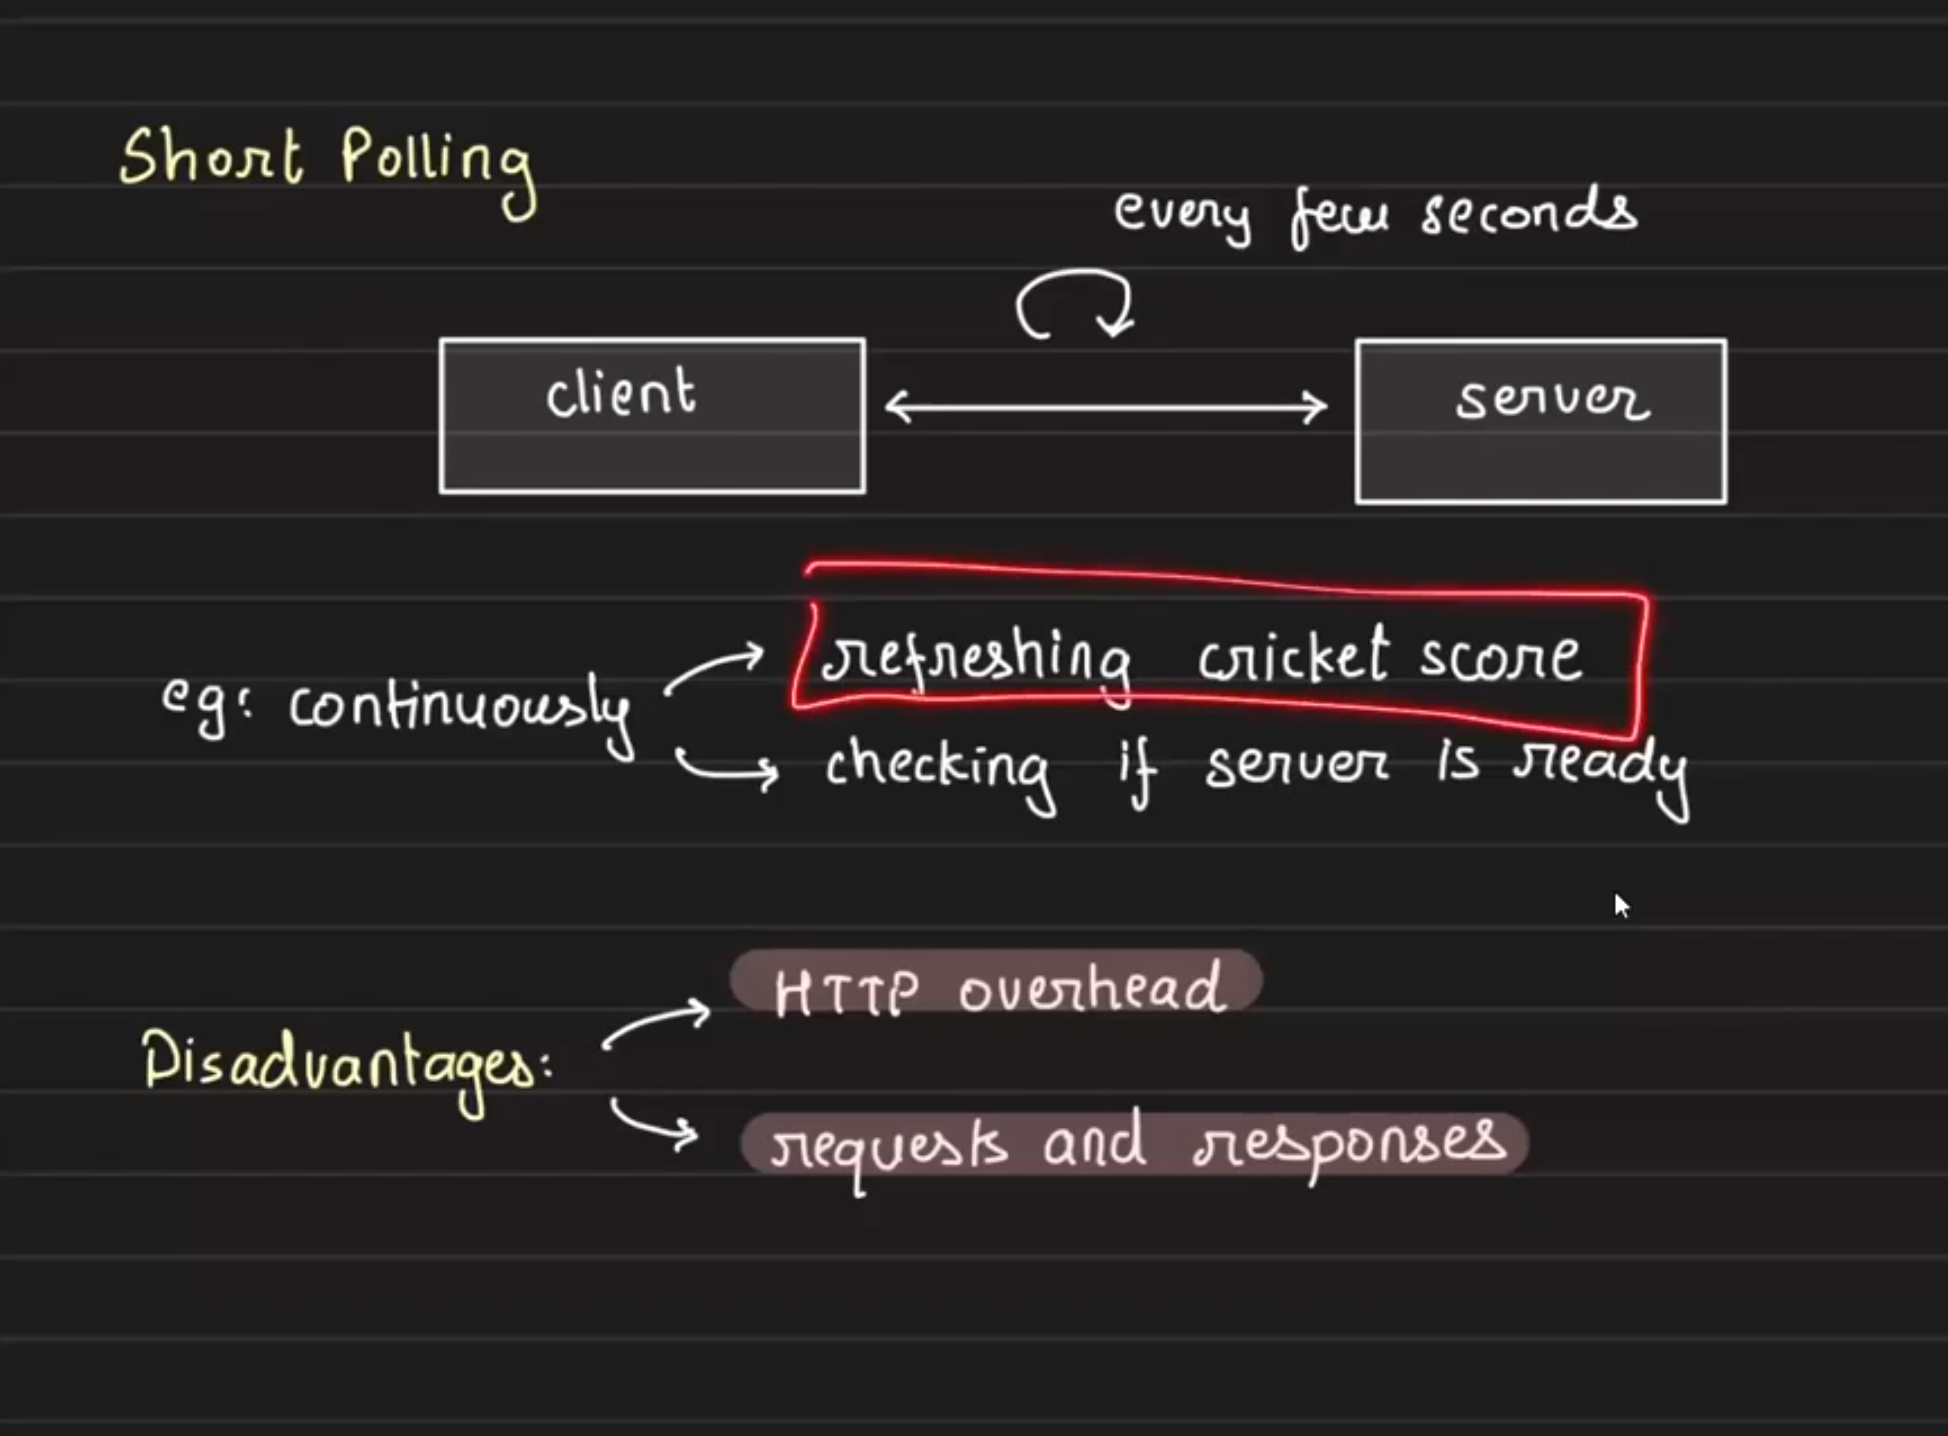 Short Polling
every few seconds
client
server
eg: continuously
refreshing cricket score
checking if server is ready
Disadvantages:
HTTP overhead
requests and responses